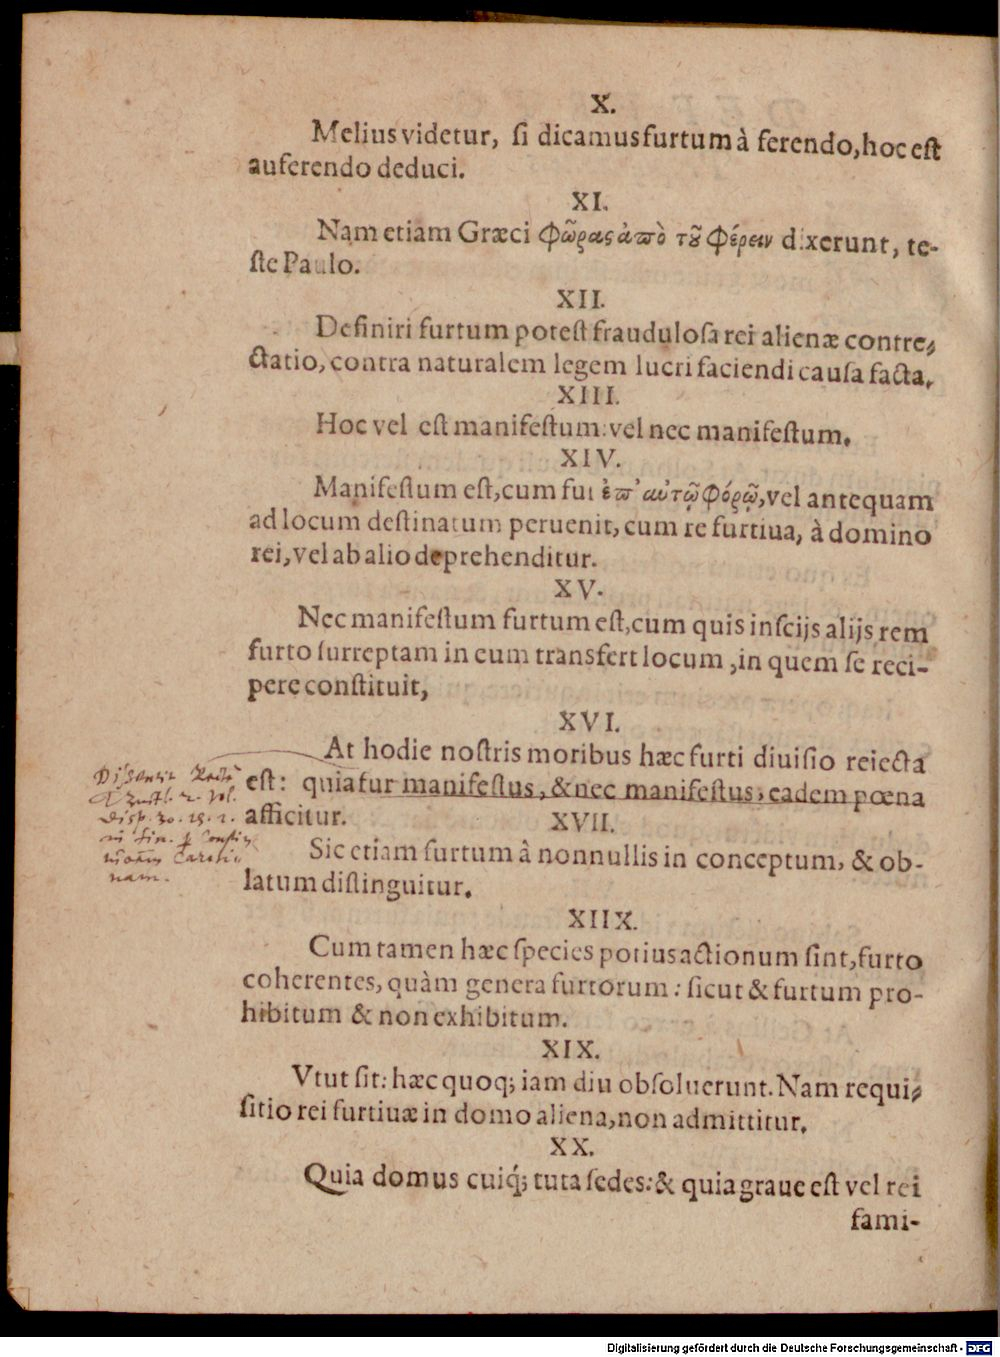 X.
Melius videtur, ſi dicamus furtum à ferendo, hoc eſt
auferendo deduci.
XI.
Nam etiam Græci φῶρας ἀπὸ τοῦ φέρειν dixerunt, te-
ſte Paulo.
XII.
Definiri furtum poteſt frauduloſa rei alienæ contre-
ctatio, contra naturalem legem lucri faciendi cauſa facta.
XIII.
Hoc vel eſt manifeſtum: vel nec manifeſtum.
XIV.
Manifeſtum eſt, cum fur ἐπ' αὐτῷ φόρῳ, vel antequam
ad locum deſtinatum peruenit, cum re furtiua, à domino
rei, vel ab alio deprehenditur.
XV.
Nec manifeſtum furtum eſt, cum quis inſcijs alijs rem
furto ſurreptam in eum transfert locum, in quem ſe reci-
pere conſtituit,
XVI.
At hodie noſtris moribus hæc furti diuiſio reiecta
eſt: quia fur manifeſtus, & nec manifeſtus, eadem pœna
afficitur.
XVII.
Sic etiam furtum â nonnullis in conceptum, & ob-
latum diſtinguitur.
XIIX.
Cum tamen hæc ſpecies potius actionum ſint, furto
coherentes, quàm genera furtorum: sicut & furtum pro-
hibitum & non exhibitum.
XIX.
Vtut ſit: hæc quoq; iam diu obſoluerunt. Nam requi-
ſitio rei furtiuæ in domo aliena, non admittitur.
XX.
Quia domus cuiq́; tuta ſedes: & quia graue eſt vel rei
fami-
Disp. 20.
in fin.
nam.
Digitalisierung gefördert durch die Deutsche Forschungsgemeinschaft - DFG